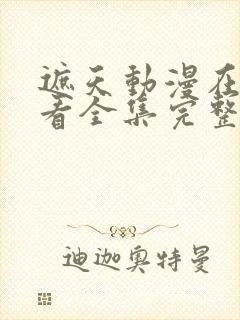 遮天動漫在
看全集完整
迪迦奥特曼